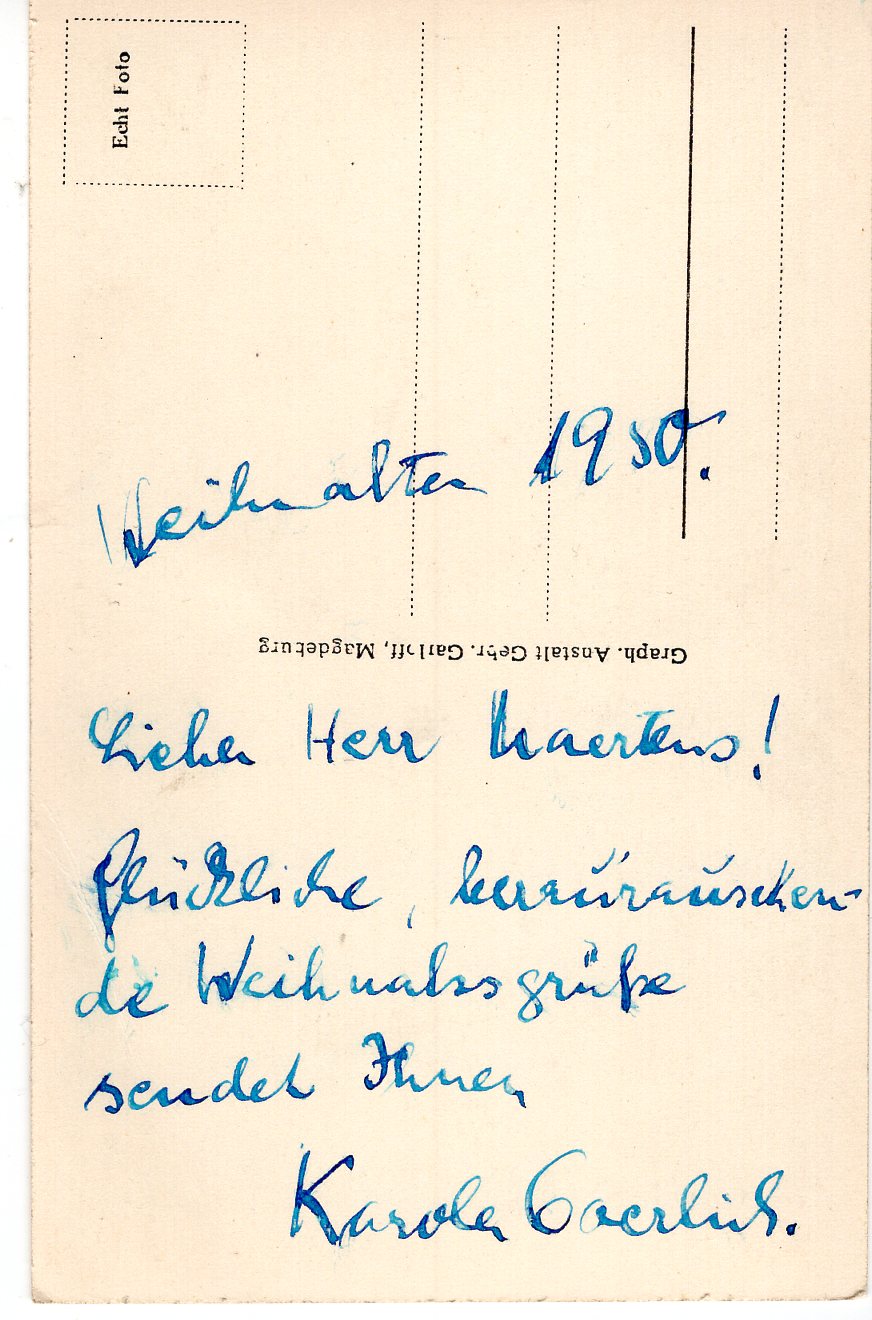 Echt Foto
Weihnachten 1950.
Graph. Anstalt Gebr. Garloff, Magdeburg
Lieber Herr Maertens!
Glückliche,
de Weihnachtsgrüße
sendet Ihnen
Karola Goerlich.